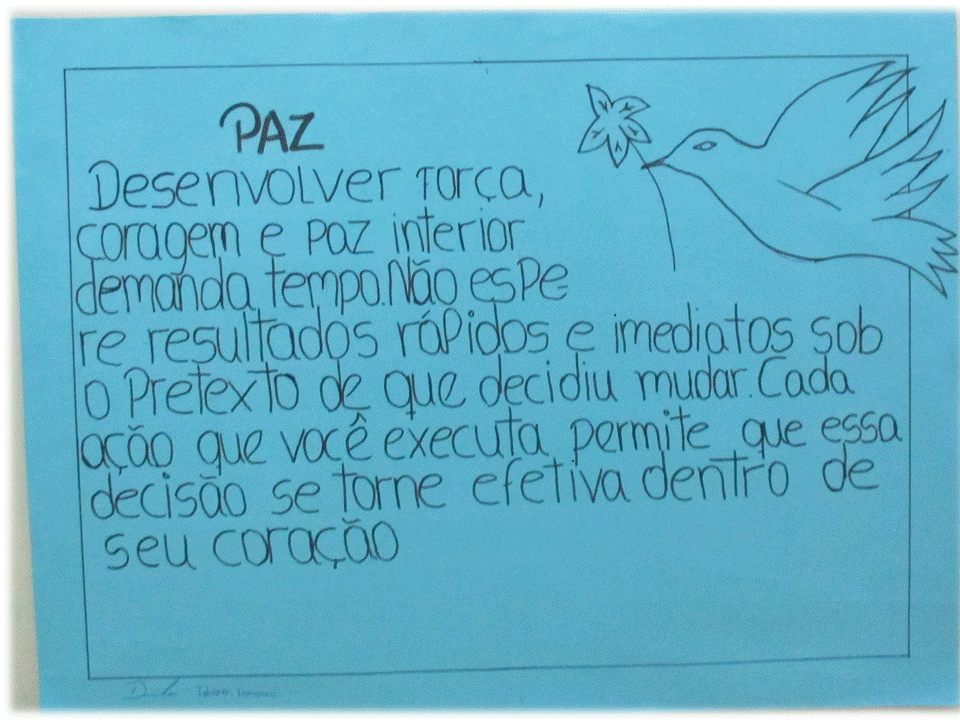 PAZ
Desenvolver força,
coragem e paz interior
demanda tempo. Não espe-
re resultados rápidos e imediatos sob
o Pretexto de que decidiu mudar. Cada
ação que você executa permite que essa
decisão se torne efetiva dentro de
seu coração